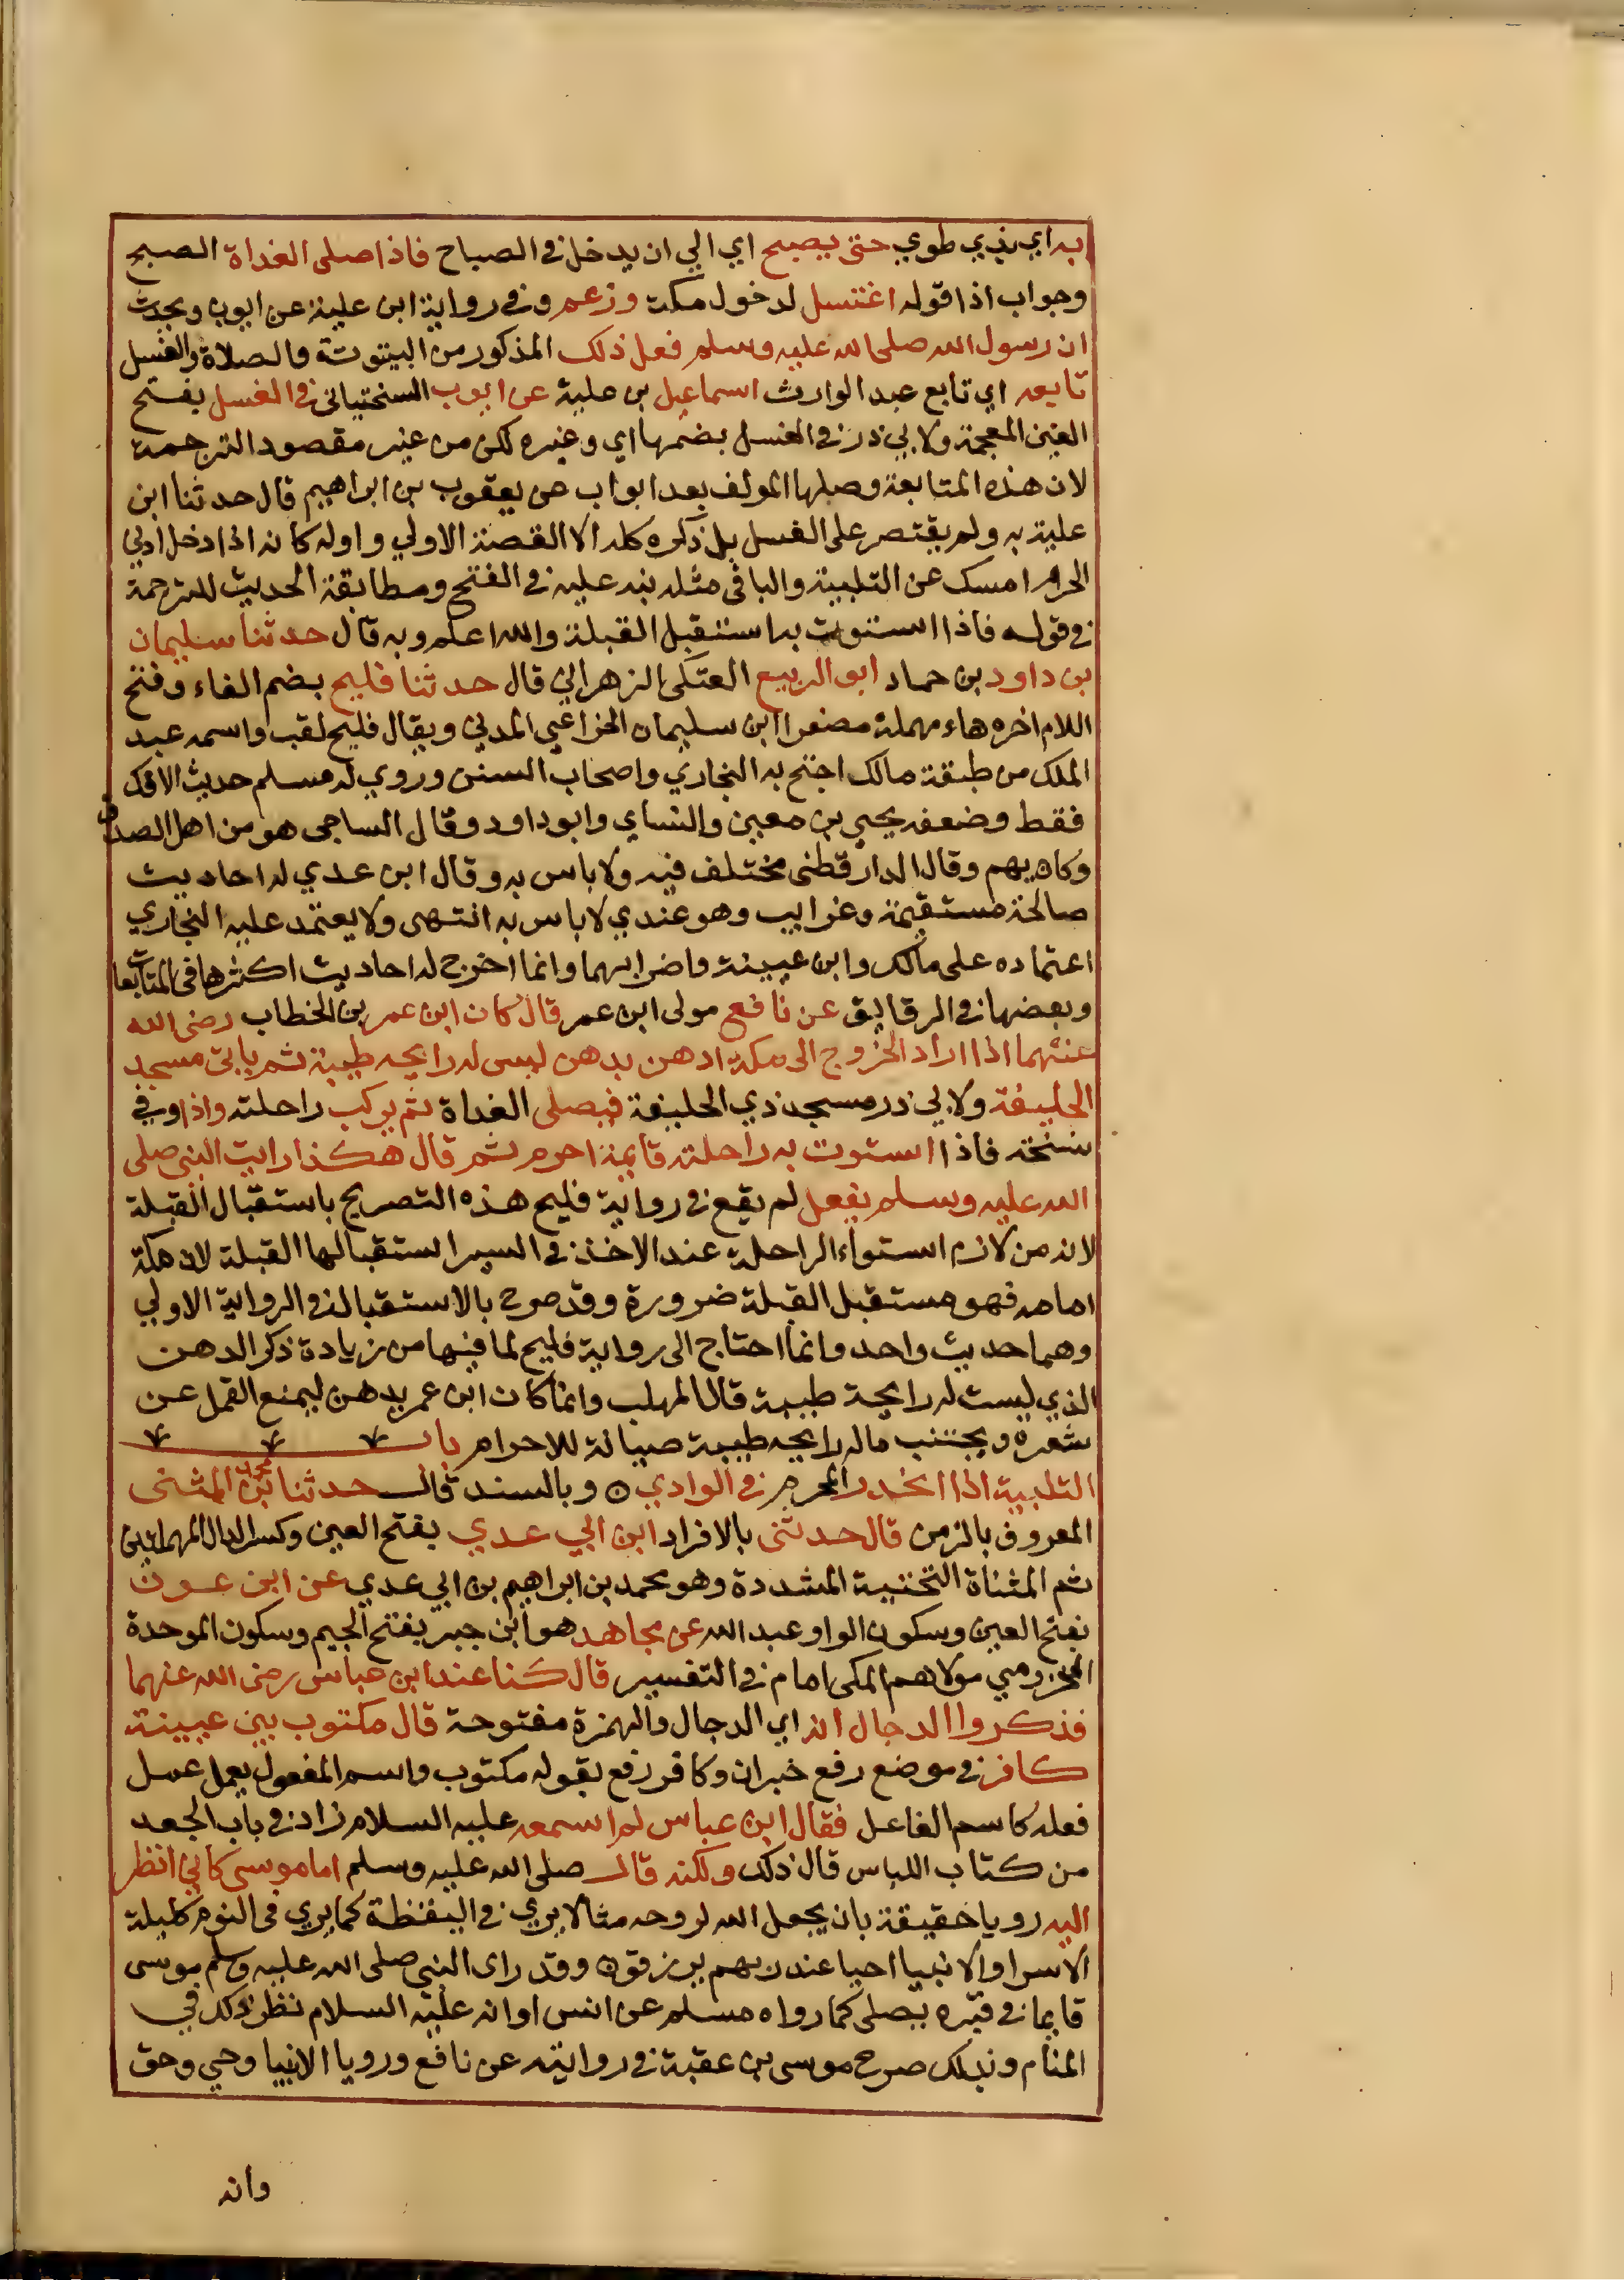 به اي بذي طوي حتى يصبح اي الي ان يدخل في الصباح فاذا صلى الغداة الصبح
وجواب اذا قوله اغتسل لدخول مكة وزعم وفي رواية ابن علية عن ايوب ويحدث
ان رسول الله صلى الله عليه وسلم فعل ذلك المذكور من البيتوتة والصلاة والغسل
تابعه اي تابع عبد الوارث اسماعيل بن علية عن ايوب السختياني في الغسل بفتح
الغين المعجمة ولابي ذر في الغسل بضمها اي وغيره لكن من غير مقصود الترجمة
لان هذه المتابعة وصلها المولف بعد ابواب عن يعقوب بن ابراهيم قال حدثنا ابن
علية به ولم يقتصر على الغسل بل ذكره كله الا القصة الاولي واوله كان اذا دخل ادني
الحرم امسك عن التلبية والباقي مثله نبه عليه في الفتح ومطابقة الحديث للترجمة
في قوله فاذا استوت به استقبل القبلة والله اعلم وبه قال حدثنا سليمان
بن داود بن حماد ابو الربيع العتكى الزهراني قال حدثنا فليح بضم الفاء وفتح
اللام اخره هاء مهملة مصغرا ابن سليمان الخزاعي المدني ويقال فليح لقب واسمه عبد
الملك من طبقة مالك احتج به البخاري واصحاب السنن وروي له مسلم حديث الافك
فقط وضعفه يحيي بن معين والنساي وابو داود وقال الساجى هو من اهل الصدق
وكان يهم وقال الدارقطنى مختلف فيه ولا باس به وقال ابن عدي له احاديث
صالحة مستقيمة وغرايب وهو عندي لا باس به انتهى ولا يعتمد عليه البخاري
اعتماده على مالك وابن عيينة واضرابهما وانما اخرج له احاديث اكثرها في المتابعات
وبعضها في الرقايق عن نافع مولى ابن عمر قال كان ابن عمر بن الخطاب رضى الله
عنهما اذا اراد الخروج الى مكة ادهن بدهن ليس له رايحه طيبة ثم ياتي مسجد
الحليفة ولابي ذر مسجد ذي الحليفة فيصلى الغداة ثم يركب راحلته واذا وفي
نسخة فاذا استوت به راحلته قايمة احرم ثم قال هكذا رايت النبي صلى
الله عليه وسلم يفعل لم يقع في رواية فليح هذه التصريح باستقبال القبلة
لانه من لازم استواء الراحلة عند الاخذ في السير استقبالها القبلة لان مكة
امامه فهو مستقبل القبلة ضرورة وقد صرح بالاستقبال في الرواية الاولي
وهما حديث واحد وانما احتاج الى رواية فليح لما فيها من زيادة ذكر الدهن
الذي ليست له رايحة طيبة قال المهلب وانما كان ابن عمر يدهن ليمنع القمل عن
شعره ويجتنب ماله رايحه طيبة صيانة للاحرام باب
التلبية اذا انحدر المحرم في الوادي ٥ وبالسند قال حدثنا محمد بن المثنى
المعروف بالزمن قال حدثنى بالافراد ابن ابي عدي بفتح العين وكسر الدال المهملتين
ثم المثناة التحتية المشددة وهو محمد بن ابراهيم بن ابي عدي عن ابن عون
بفتح العين وسكون الواو عبد الله عن مجاهد هو ابن جبر بفتح الجيم وسكون الموحدة
المخزومي مولاهم المكى امام في التفسير قال كنا عند ابن عباس رضى الله عنهما
فذكروا الدجال انه اي الدجال والهمزة مفتوحة قال مكتوب بين عيينة
كافر في موضع رفع خبر ان وكافر رفع بقوله مكتوب واسم المفعول يعمل عمل
فعله كاسم الفاعل فقال ابن عباس لم اسمعه عليه السلام زاد في باب الجعد
من كتاب اللباس قال ذلك ولكنه قال صلى الله عليه وسلم اما موسى كاني انظر
اليه رويا حقيقة بان يجعل الله لروحه مثالا يري في اليقظة كما يري في النوم كليلة
الاسرا والانبيا احيا عند ربهم يرزقون وقد راى النبي صلى الله عليه وسلم موسى
قايما في قبره يصلى كما رواه مسلم عن انس او انه عليه السلام نظر ذلك في
المنام وبذلك صرح موسى بن عقبة في روايته عن نافع ورويا الانبيا وحي وحق
وانه